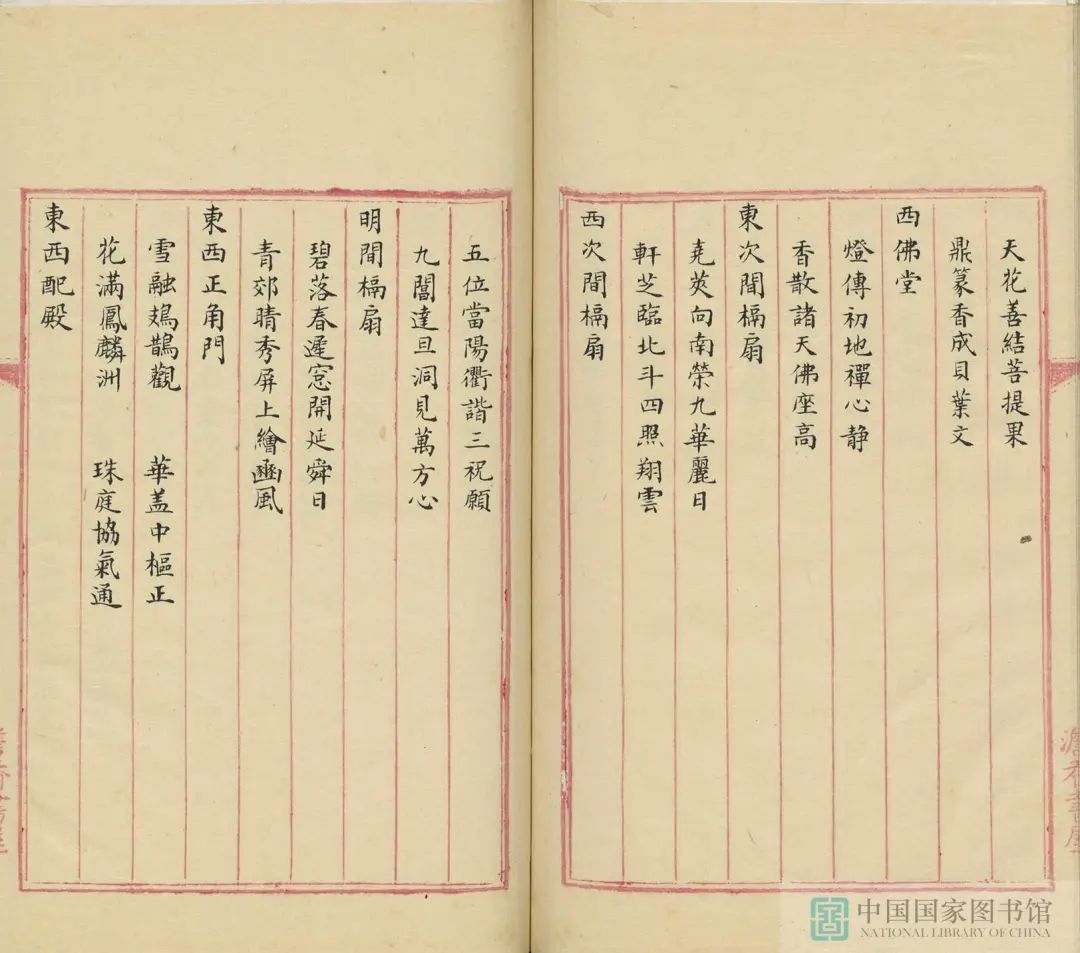 天花善結菩提果
鼎篆香成貝葉文
西佛堂
燈傳初地禪心静
香散諸天佛座高
東次間槅扇
堯蓂向南榮九華麗日
軒芝臨北斗四照翔雲
西次間槅扇
五位當陽衢諧三祝願
九閶達旦洞見萬方心
明間槅扇
碧落春遲窓開延舜日
青郊晴秀屏上繪豳風
東西正角門
雪融鳷鵲觀 華盖中樞正
花滿鳳麟洲 珠庭協氣通
東西配殿
中国国家图书馆
NATIONAL LIBRARY OF CHINA